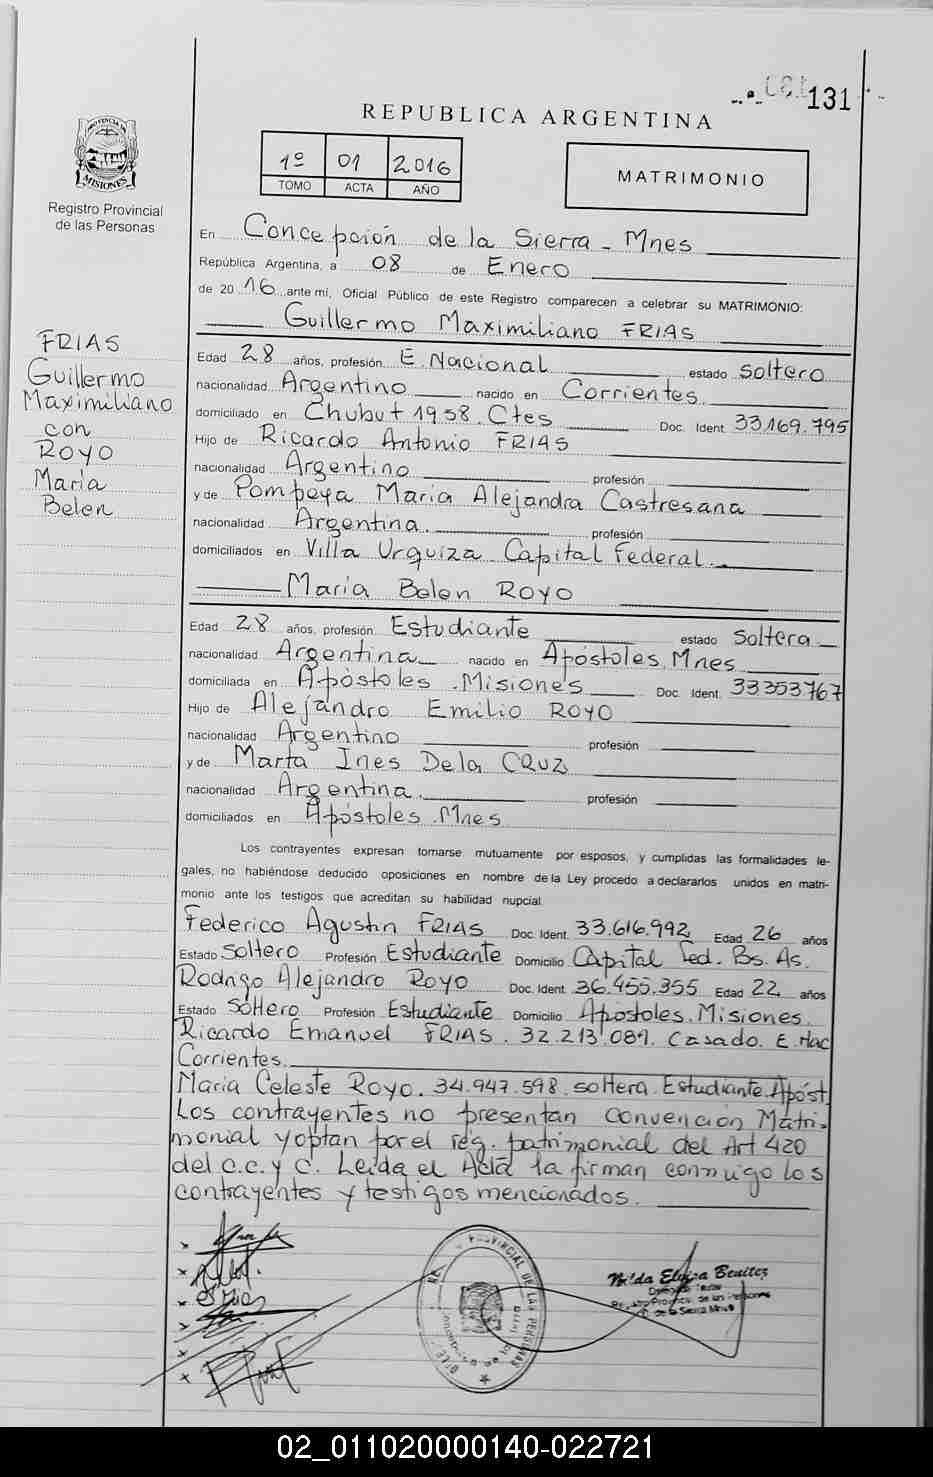 131
REPUBLICA ARGENTINA
1º 01 2016
TOMO ACTA AÑO
MATRIMONIO
PROVINCIA DE MISIONES
Registro Provincial
de las Personas
En Concepción de la Sierra - Mnes
República Argentina, a 08 de Enero
de 2016 ante mí, Oficial Público de este Registro comparecen a celebrar su MATRIMONIO:
Guillermo Maximiliano FRIAS
FRIAS
Guillermo
Maximiliano
con
ROYO
Maria
Belen
Edad 28 años, profesión E. Nacional estado soltero
nacionalidad Argentino nacido en Corrientes.
domiciliado en Chubut 1958. Ctes Doc. Ident. 33.169.795
Hijo de Ricardo Antonio FRIAS
nacionalidad Argentino profesión
y de Pompeya Maria Alejandra Castresana
nacionalidad Argentina. profesión
domiciliados en Villa Urquiza Capital Federal.
Maria Belen ROYO
Edad 28 años, profesión Estudiante estado soltera
nacionalidad Argentina nacido en Apóstoles. Mnes
domiciliada en Apóstoles . Misiones Doc. Ident. 33353767
Hijo de Alejandro Emilio ROYO
nacionalidad Argentino profesión
y de Marta Ines De la CRUZ
nacionalidad Argentina. profesión
domiciliados en Apóstoles . Mnes
Los contrayentes expresan tomarse mutuamente por esposos, y cumplidas las formalidades le-
gales, no habiéndose deducido oposiciones en nombre de la Ley procedo a declararlos unidos en matri-
monio ante los testigos que acreditan su habilidad nupcial.
Federico Agustin FRIAS Doc. Ident. 33.616.992 Edad 26 años
Estado soltero Profesión Estudiante Domicilio Capital Fed. Bs. As.
Rodrigo Alejandro Royo Doc. Ident. 36.455.355 Edad 22 años
Estado soltero Profesión Estudiante Domicilio Apostoles. Misiones.
Ricardo Emanuel FRIAS. 32.213.089. Casado. E. Nac
Corrientes.
Maria Celeste Royo. 34.947.598. soltera. Estudiante. Apóst
Los contrayentes no presentan convención Matri-
monial y optan por el reg. patrimonial del Art 420
del C.C. y C. Leida el Acta la firman conmigo los
contrayentes y testigos mencionados.
PROVINCIAL DE LAS PERSONAS
Nilda Eloisa Benitez
de la Sierra Mnes
02_011020000140-022721